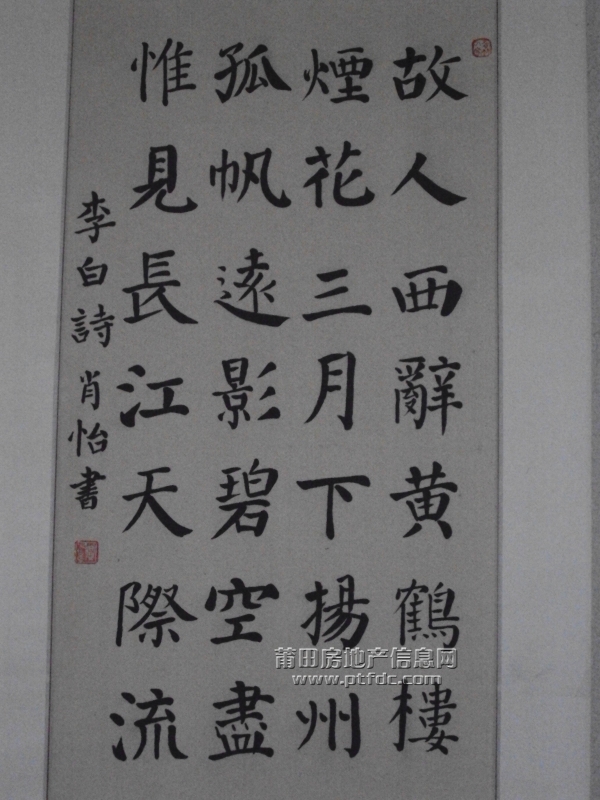 故人西辭黄鶴樓
煙花三月下揚州
孤帆遠影碧空盡
惟見長江天際流
李白詩 肖怡書
莆田房地产信息网
www.ptfdc.com